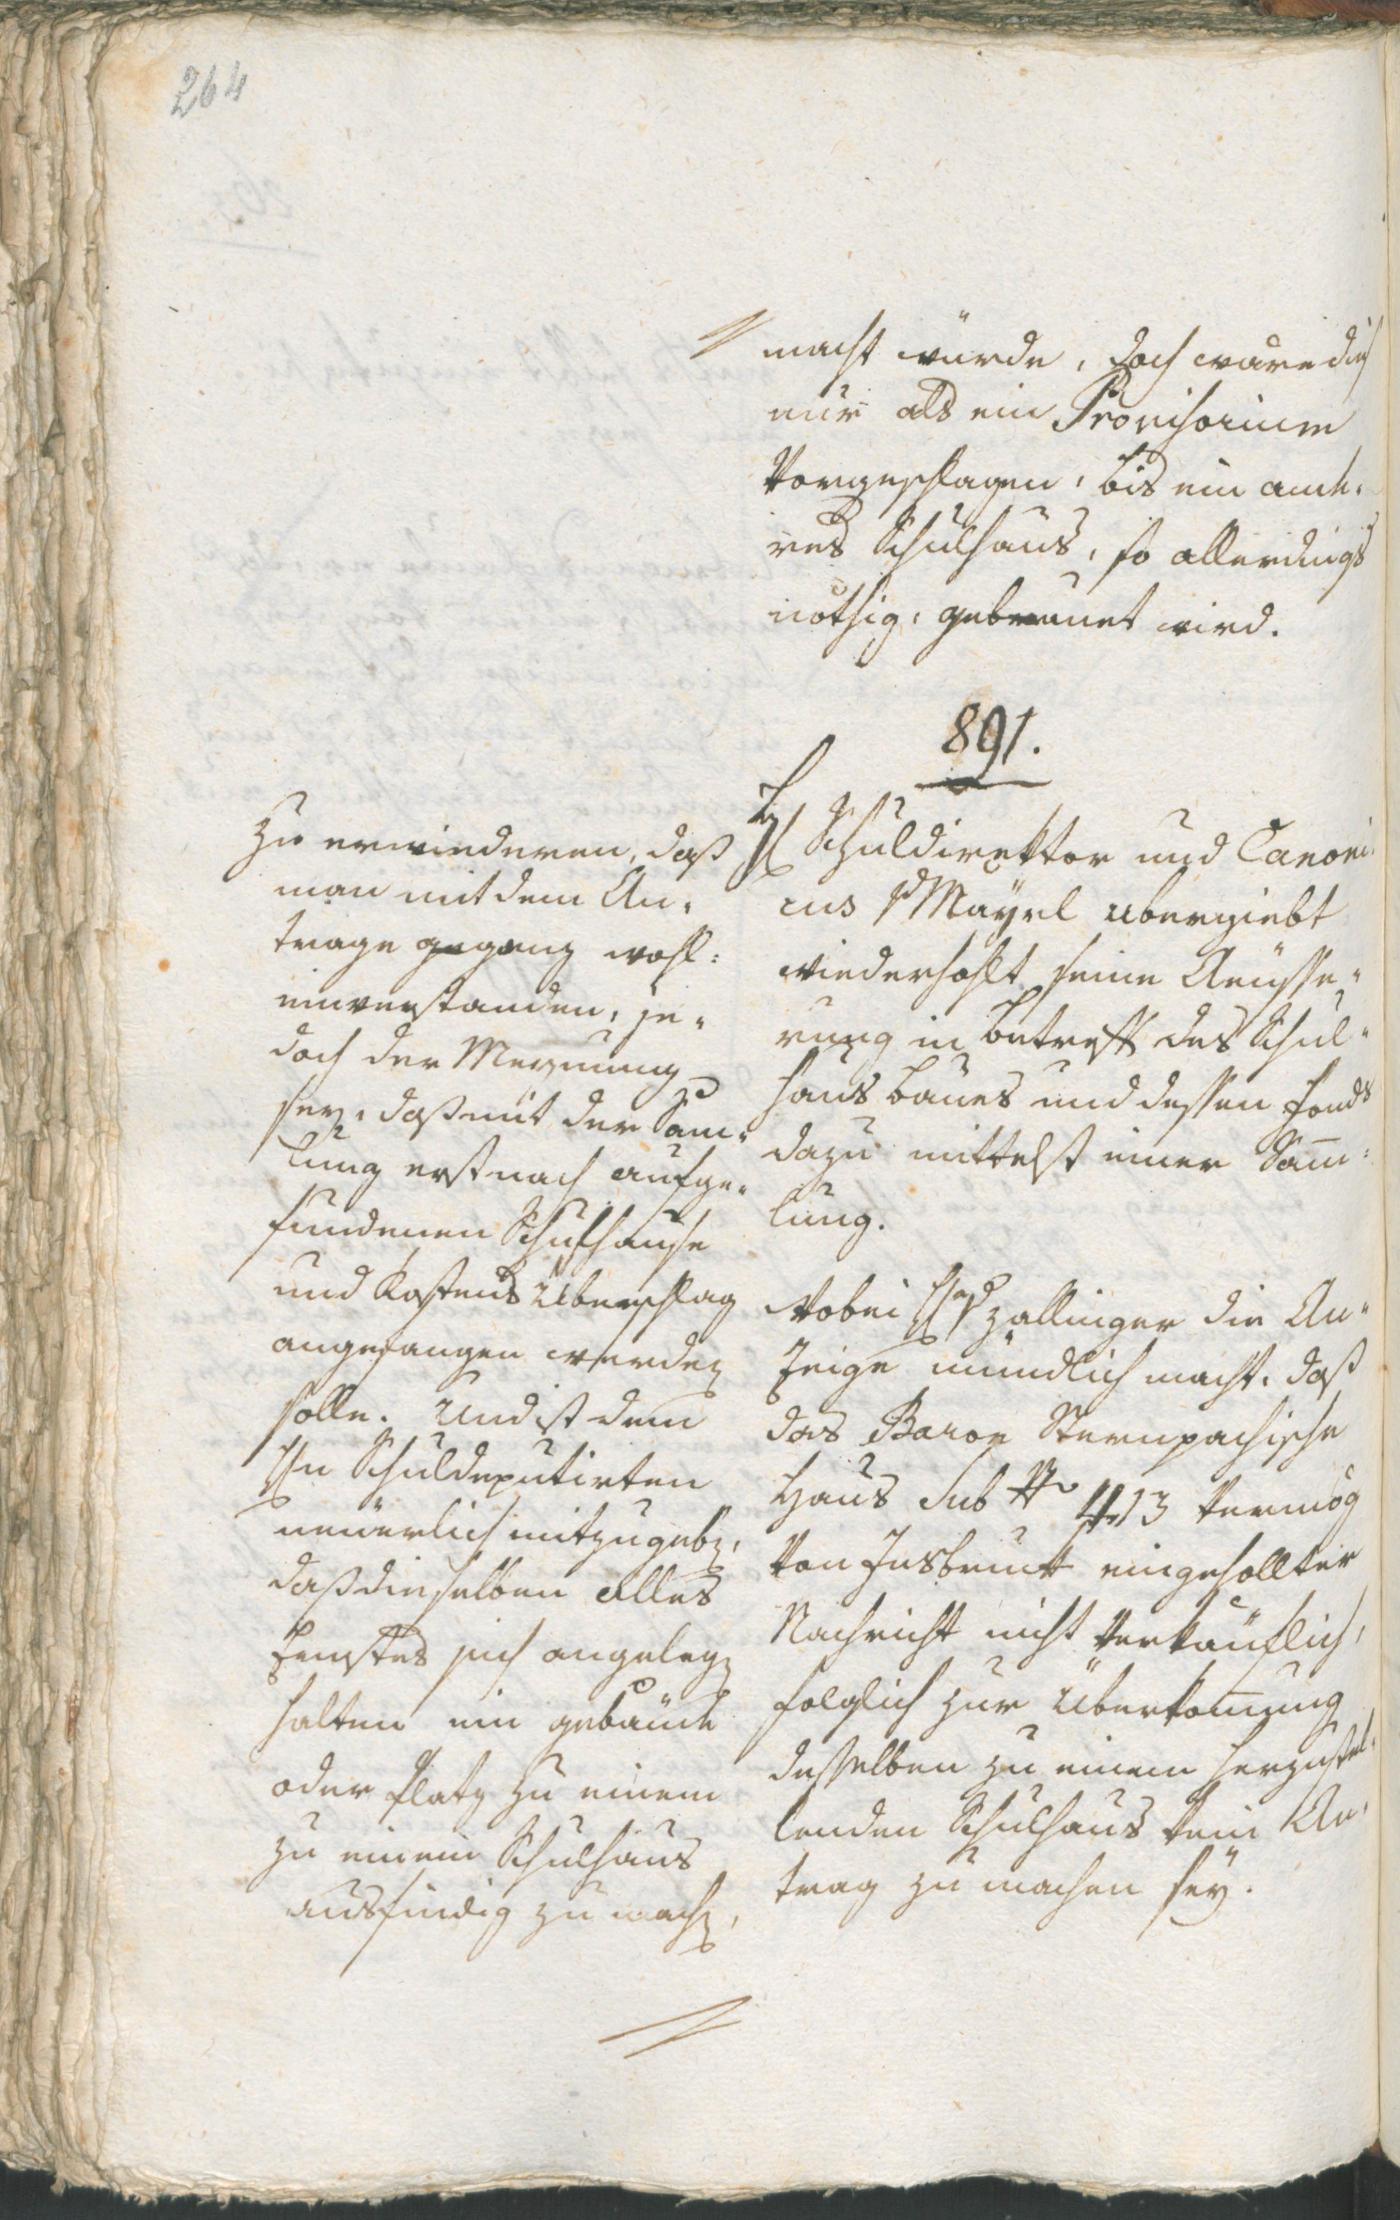 264
macht würde, doch ware dies
nur als ein Provisorium
Vorgeschlagen, bis ein ande-
res Schulhaus, so allerdings
nöthig, gebauet wird.
891.
H Schuldirektor und Canoni-
cus v Mayrl ubergiebt
wiederhohlt seine Aeusse-
rung in betreff des Schul-
haus baues und dessen fonds
dazu mittelst einer Sam̅-
lung.
Wobei H v Zallinger die An-
zeige mündlich macht, daß
das Baron Sternpachische
Haus Sub No 413 Vermög
Von Insbruk eingehollter
Nachricht nicht Verkäuflich,
folglich zur Überkom̅ung
desselben zu einem herzustel-
lenden Schulhaus kein An-
trag zu machen seÿ.
Zu erwiederen, daß
man mit dem An-
trage ganz wohl-
einverstanden, je-
doch der Meynung
sey, daß mit der Sam-
lung erst nach aufge-
fundenen Schulhause
und Kostens Überschlag
angefangen werden
solle. Und ist dem
Hn Schuldeputirten
neuerlich mitzugeben,
daß dieselben alles
Ernstes sich angelegen
halten ein gebäude
oder Platz zu einem
zu einem Schulhaus
ausfindig zu machen,